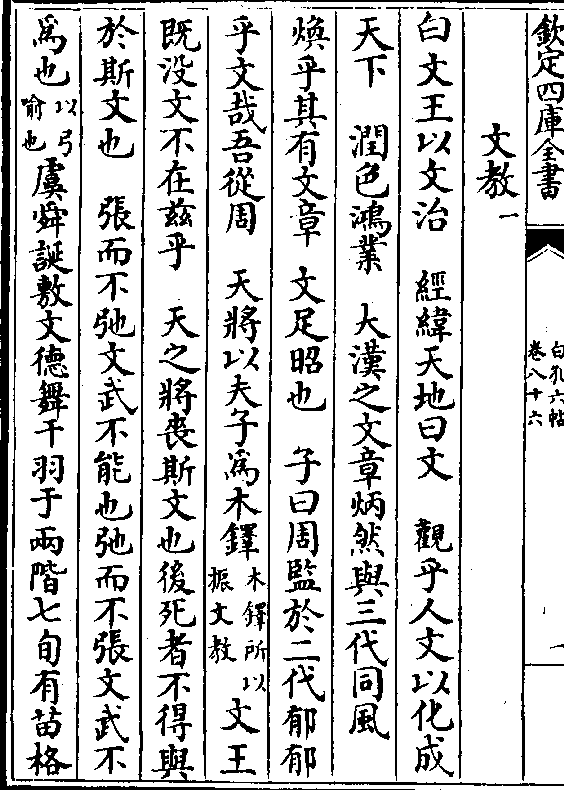 欽定四庫全書
白孔六帖
卷八十六
一
文教一
白文王以文治　經緯天地曰文　觀乎人文以化成
天下　潤色鴻業　大漢之文章炳然與三代同風
煥乎其有文章　文足昭也　子曰周監於二代郁郁
乎文哉吾從周　天將以夫子為木鐸木鐸所以振文教文王
既没文不在茲乎　天之將喪斯文也後死者不得與
於斯文也　張而不弛文武不能也弛而不張文武不
為也以弓喻也虞舜誕敷文德舞干羽于兩階七旬有苗格